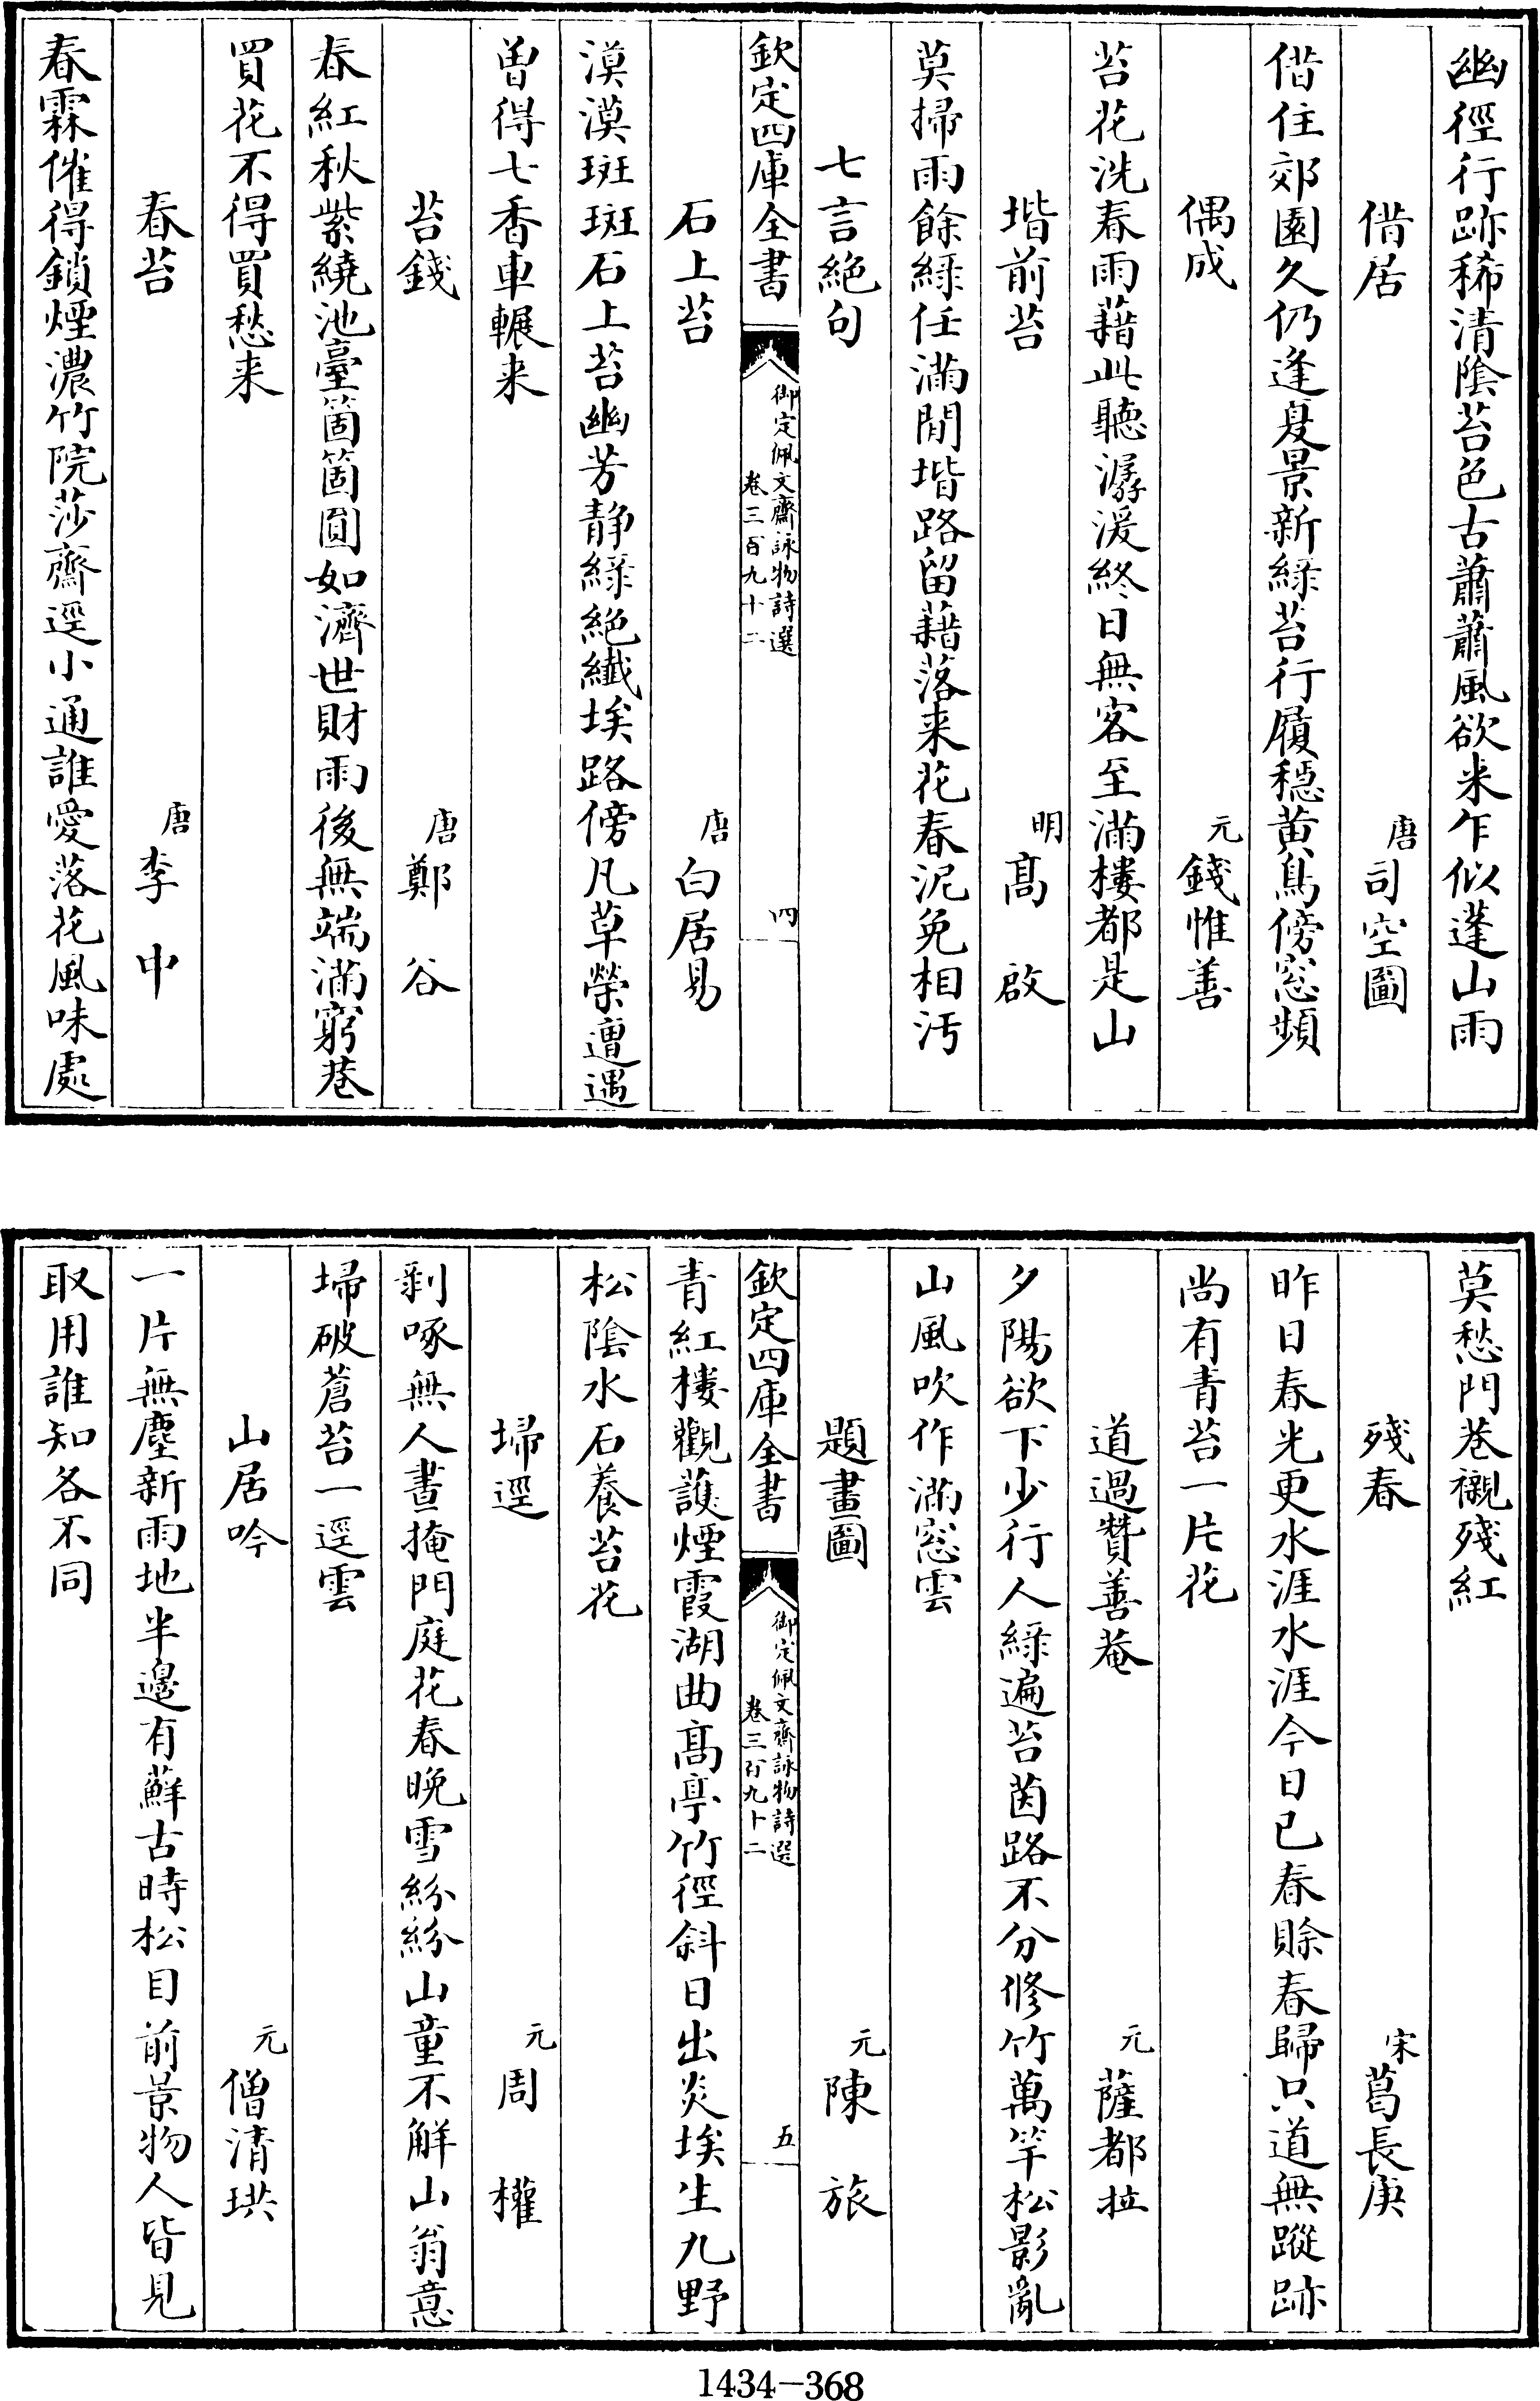 幽徑行跡稀清陰苔色古蕭蕭風欲来乍似蓬山雨
借居　唐司空圖
借住郊園久仍逢夏景新綠苔行履穩黄鳥傍窓頻
偶成　元錢惟善
苔花洗春雨藉此聽潺湲終日無客至滿樓都是山
堦前苔　明髙啟
莫掃雨餘綠任滿閒堦路留藉落来花春泥免相汚
七言絶句
欽定四庫全書　御定佩文齋詠物詩選　卷三百九十二　四
石上苔　唐白居易
漠漠斑斑石上苔幽芳静綠絶纎埃路傍凡草榮遭遇
曽得七香車輾来
苔錢　唐鄭谷
春紅秋紫繞池臺箇箇圓如濟世財雨後無端滿窮巷
買花不得買愁来
春苔　唐李中
春霖催得鎖煙濃竹院莎齋逕小通誰愛落花風味處
莫愁門巷襯殘紅
殘春　宋葛長庚
昨日春光更水涯水涯今日已春賒春歸只道無蹤跡
尚有青苔一片花
道過贊善菴　元薩都拉
夕陽欲下少行人綠遍苔茵路不分修竹萬竿松影亂
山風吹作滿窓雲
題畫圖　元陳旅
欽定四庫全書　御定佩文齋詠物詩選　卷三百九十二　五
青紅樓觀護煙霞湖曲髙亭竹徑斜日出炎埃生九野
松陰水石養苔花
埽逕　元周權
剥啄無人晝掩門庭花春晩雪紛紛山童不解山翁意
埽破蒼苔一逕雲
山居吟　元僧清珙
一片無塵新雨地半邊有蘚古時松目前景物人皆見
取用誰知各不同
1434-368